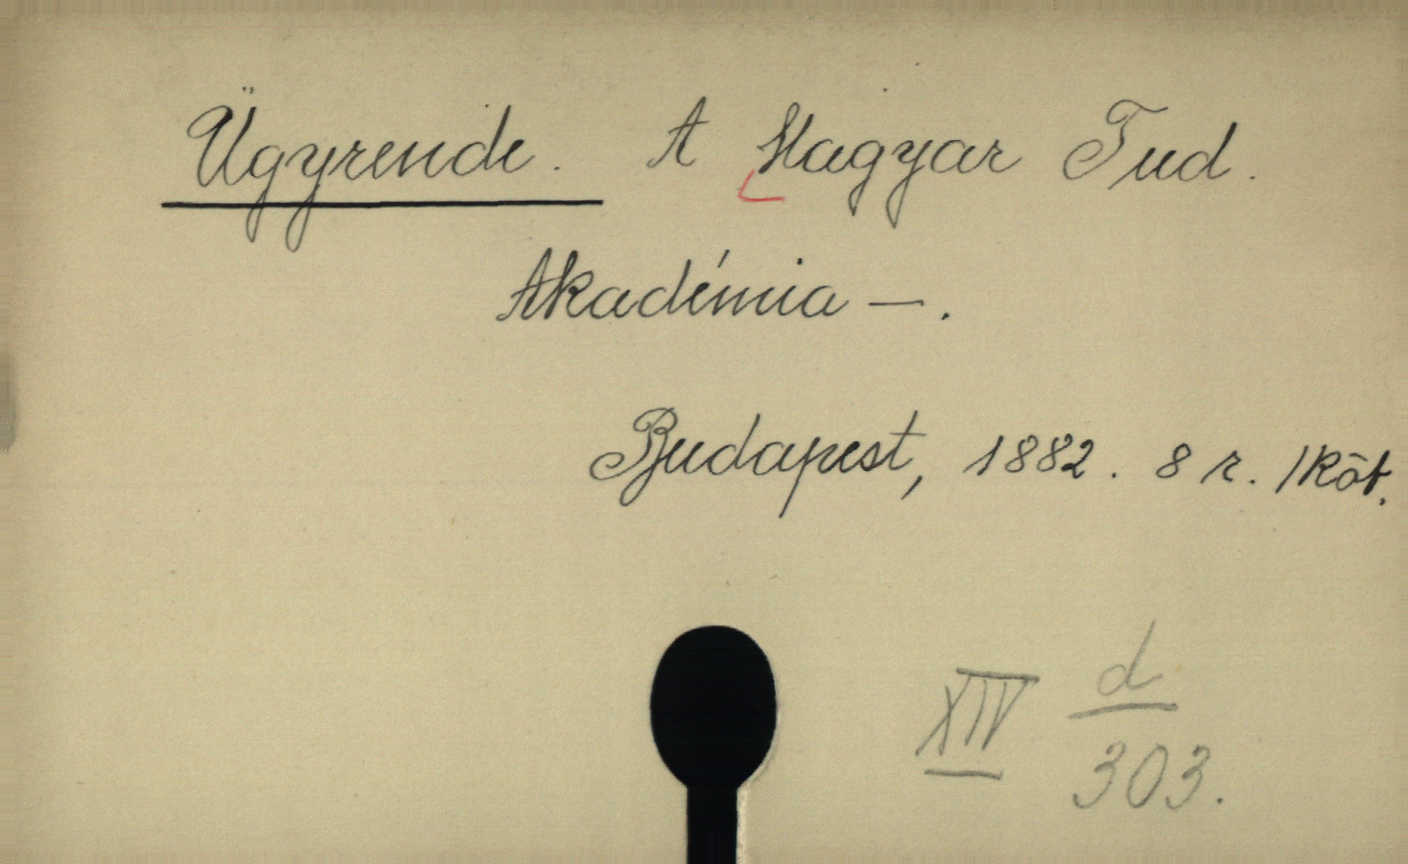 Ügyrende. A Magyar Tud.
Akadémia —.
Budapest, 1882. 8 r. 1 köt.
XIV d
303.